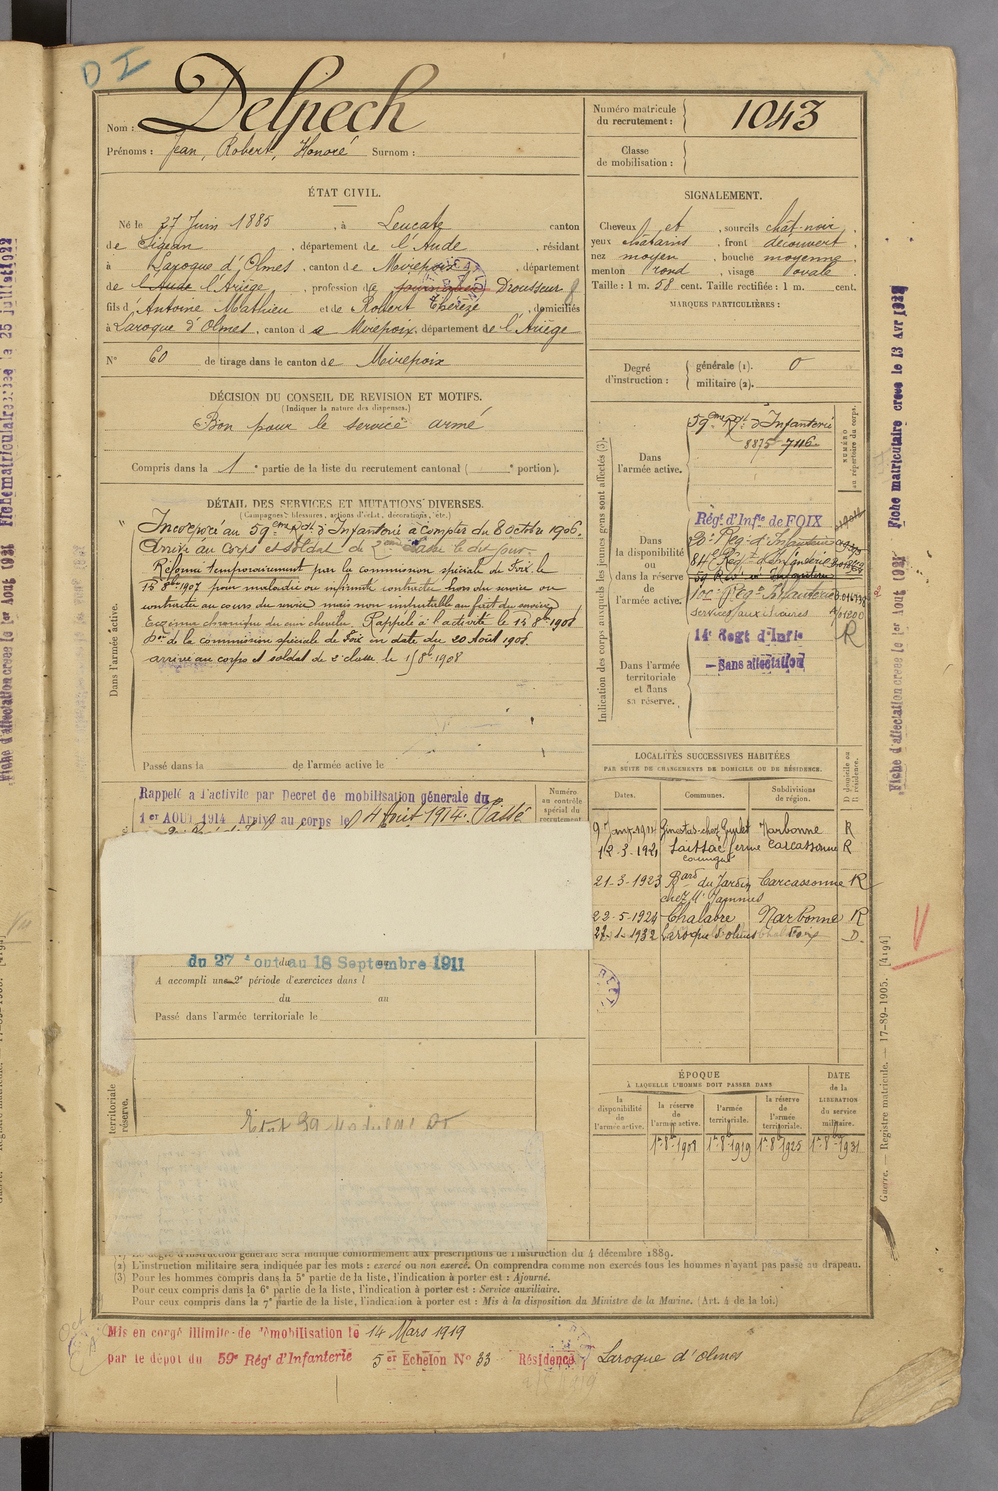 D I
Nom : Delpech
Prénoms : Jean, Robert, Honoré Surnom :
Numéro matricule du recrutement : 1043
Classe de mobilisation :
ÉTAT CIVIL.
Né le 27 Juin 1885, à Leucate canton
de Sigean, département de l'Aude, résidant
à Laroque d'Olmes, canton de Mirepoix, département
de l'Aude l'Ariège, profession de journalier Drousseur
fils d'Antoine Mathieu et de Robert Thérèze, domiciliés
à Laroque d'Olmes, canton de Mirepoix, département de l'Ariège
N° 60 de tirage dans le canton de Mirepoix
SIGNALEMENT.
Cheveux et, sourcils chât-noir,
yeux châtains, front découvert,
nez moyen, bouche moyenne,
menton rond, visage ovale
Taille : 1 m. 58 cent. Taille rectifiée : 1 m. cent.
MARQUES PARTICULIÈRES :
Degré d'instruction : générale (1). 0
militaire (2).
DÉCISION DU CONSEIL DE REVISION ET MOTIFS.
(Indiquer la nature des dispenses.)
Bon pour le service armé
Compris dans la 1e partie de la liste du recrutement cantonal ( e portion).
DÉTAIL DES SERVICES ET MUTATIONS DIVERSES.
(Campagnes, blessures, actions d'éclat, décorations, etc.)
Dans l'armée active.
Incorporé au 59ème Rgt d'Infanterie à compter du 8 octobre 1906.
Arrivé au corps et soldat de 2ème classe le dit jour.
Réformé temporairement par la commission spéciale de Foix le
15 8bre 1907 pour maladie ou infirmité contractée hors du service ou
contractée au cours du service mais non imputable au fait du service
Eczéma chronique du cuir chevelu. Rappelé à l'activité le 15 8bre 1908
de la commission spéciale de Foix en date du 20 Août 1908.
arrivé au corps et soldat de 2e classe le 15 8bre 1908
Passé dans la de l'armée active le
Indication des corps auxquels les jeunes gens sont affectés (3).
NUMÉRO au répertoire du corps.
Dans l'armée active.
59ème Rgt d'Infanterie
8875
Dans la disponibilité ou dans la réserve de l'armée active.
Régt d'Infie de FOIX
80e Reg. d'Infanterie
84e Regt d'Infanterie
59 Regt d'Infanterie
Services auxiliaires
R
14e Regt d'Infie
— Sans affectation
Dans l'armée territoriale et dans sa réserve.
Rappelé à l'activité par Decret de mobilisation génerale du
1er AOUT 1914 Arrivé au corps le 4 Août 1914. Passé
Numéro au contrôle spécial du recrutement
du 27 Aout au 18 Septembre 1911
A accompli une 2e période d'exercices dans l
du au
Passé dans l'armée territoriale le
territoriale
réserve.
LOCALITÉS SUCCESSIVES HABITÉES
PAR SUITE DE CHANGEMENTS DE DOMICILE OU DE RÉSIDENCE.
D domicile ou R résidence.
Dates. Communes. Subdivisions de région.
Narbonne R
12-3-1921 Carcassonne R
21-3-1923 Bard du Jardin Carcassonne R
22-5-1924 Chalabre Narbonne R
22-1-1932 Laroque d'olmes Foix D.
ÉPOQUE
À LAQUELLE L'HOMME DOIT PASSER DANS
DATE de la LIBÉRATION du service militaire.
la disponibilité de l'armée active.
la réserve de l'armée active.
l'armée territoriale.
la réserve de l'armée territoriale.
1er 8bre 1908 1er 8bre 1919 1er 8bre 1925 1er 8bre 1931
(1) Le degré d'instruction générale sera indiqué conformément aux prescriptions de l'instruction du 4 décembre 1889.
(2) L'instruction militaire sera indiquée par les mots : exercé ou non exercé. On comprendra comme non exercés tous les hommes n'ayant pas passé au drapeau.
(3) Pour les hommes compris dans la 5e partie de la liste, l'indication à porter est : Ajourné.
Pour ceux compris dans la 6e partie de la liste, l'indication à porter est : Service auxiliaire.
Pour ceux compris dans la 7e partie de la liste, l'indication à porter est : Mis à la disposition du Ministre de la Marine. (Art. 4 de la loi.)
Mis en congé illimité de démobilisation le 14 Mars 1919
par le dépôt du 59e Régt d'Infanterie 5er Echelon N° 33 Résidence Laroque d'Olmes
Fiche matriculaire creee le 13 Avr
Fiche d'affectation creee le 1er Août 1931
Guerre. — Registre matricule. — 17-89-1905. [4194]